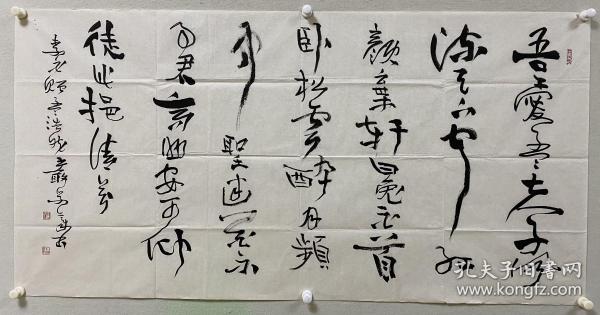 吾愛孟夫子風
流天下聞紅
顏棄軒冕白首
臥松雲醉月頻
中聖迷花不
事君高山安可仰
徒此揖清芬
李白贈孟浩然
孔夫子旧书网
www.kongfz.com